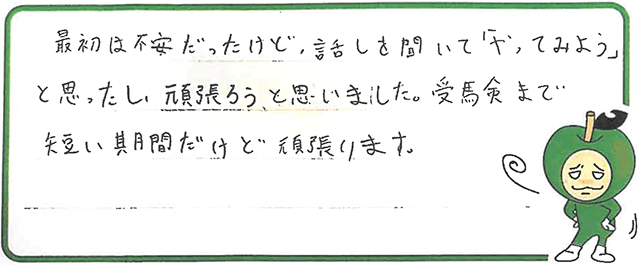 最初は不安だったけど、話しを聞いて「やってみよう」
と思ったし、頑張ろうと思いました。受験まで
短い期間だけど頑張ります。